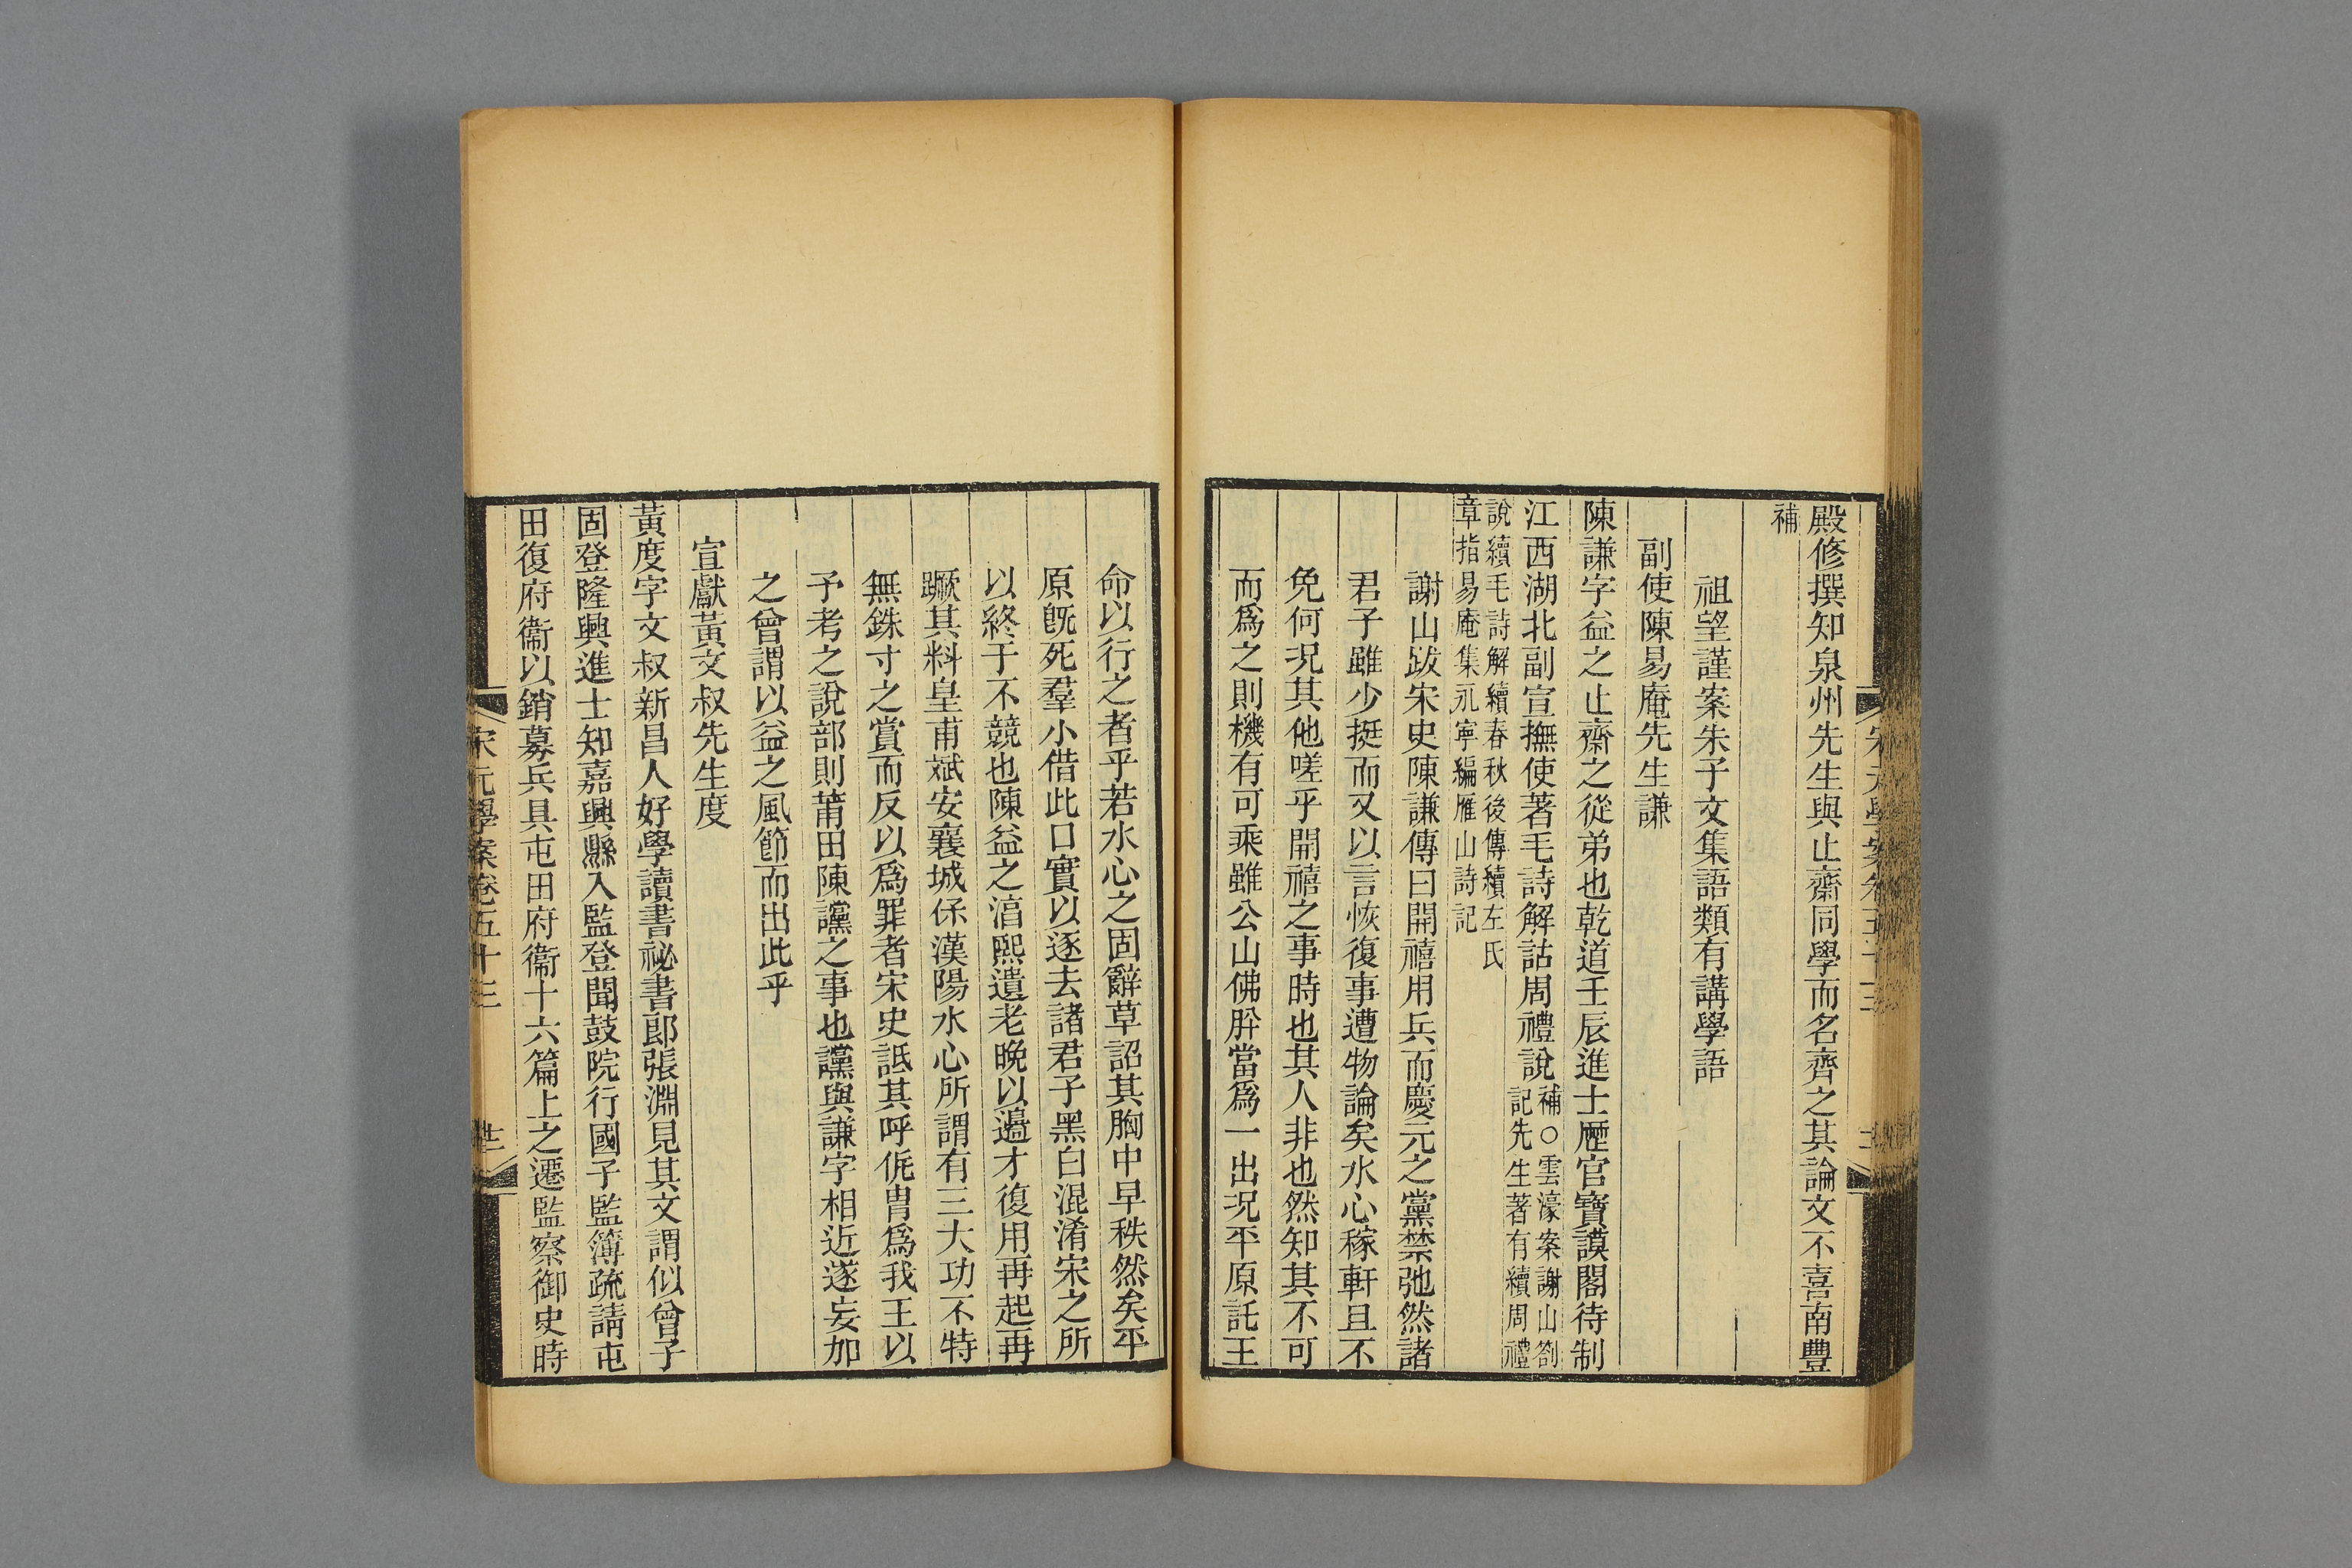 殿修撰知泉州先生與止齋同學而名齊之其論文不喜南豐
補
祖望謹案朱子文集語類有講學語
副使陳易庵先生謙
陳謙字益之止齋之從弟也乾道壬辰進士歷官寶謨閣待制
江西湖北副宣撫使著毛詩解詁周禮說
補○雲濠案謝山劄
記先生著有續周禮
說續毛詩解續春秋後傳續左氏
章指易庵集永寧編雁山詩記
謝山跋宋史陳謙傳曰開禧用兵而慶元之黨禁弛然諸
君子雖少挺而又以言恢復事遭物論矣水心稼軒且不
免何況其他嗟乎開禧之事時也其人非也然知其不可
而爲之則機有可乘雖公山佛肸當爲一出況平原託王
命以行之者乎若水心之固辭草詔其胸中早秩然矣平
原旣死羣小借此口實以逐去諸君子黑白混淆宋之所
以終于不競也陳益之淳熙遺老晚以邊才復用再起再
蹶其料皇甫斌安襄城保漢陽水心所謂有三大功不特
無銖寸之賞而反以爲罪者宋史詆其呼侂胄爲我王以
予考之說部則莆田陳讜之事也讜與謙字相近遂妄加
之曾謂以益之風節而出此乎
宣獻黃文叔先生度
黃度字文叔新昌人好學讀書祕書郎張淵見其文謂似曾子
固登隆興進士知嘉興縣入監登聞鼓院行國子監簿疏請屯
田復府衞以銷募兵具屯田府衞十六篇上之遷監察御史時
宋元學案卷五十三